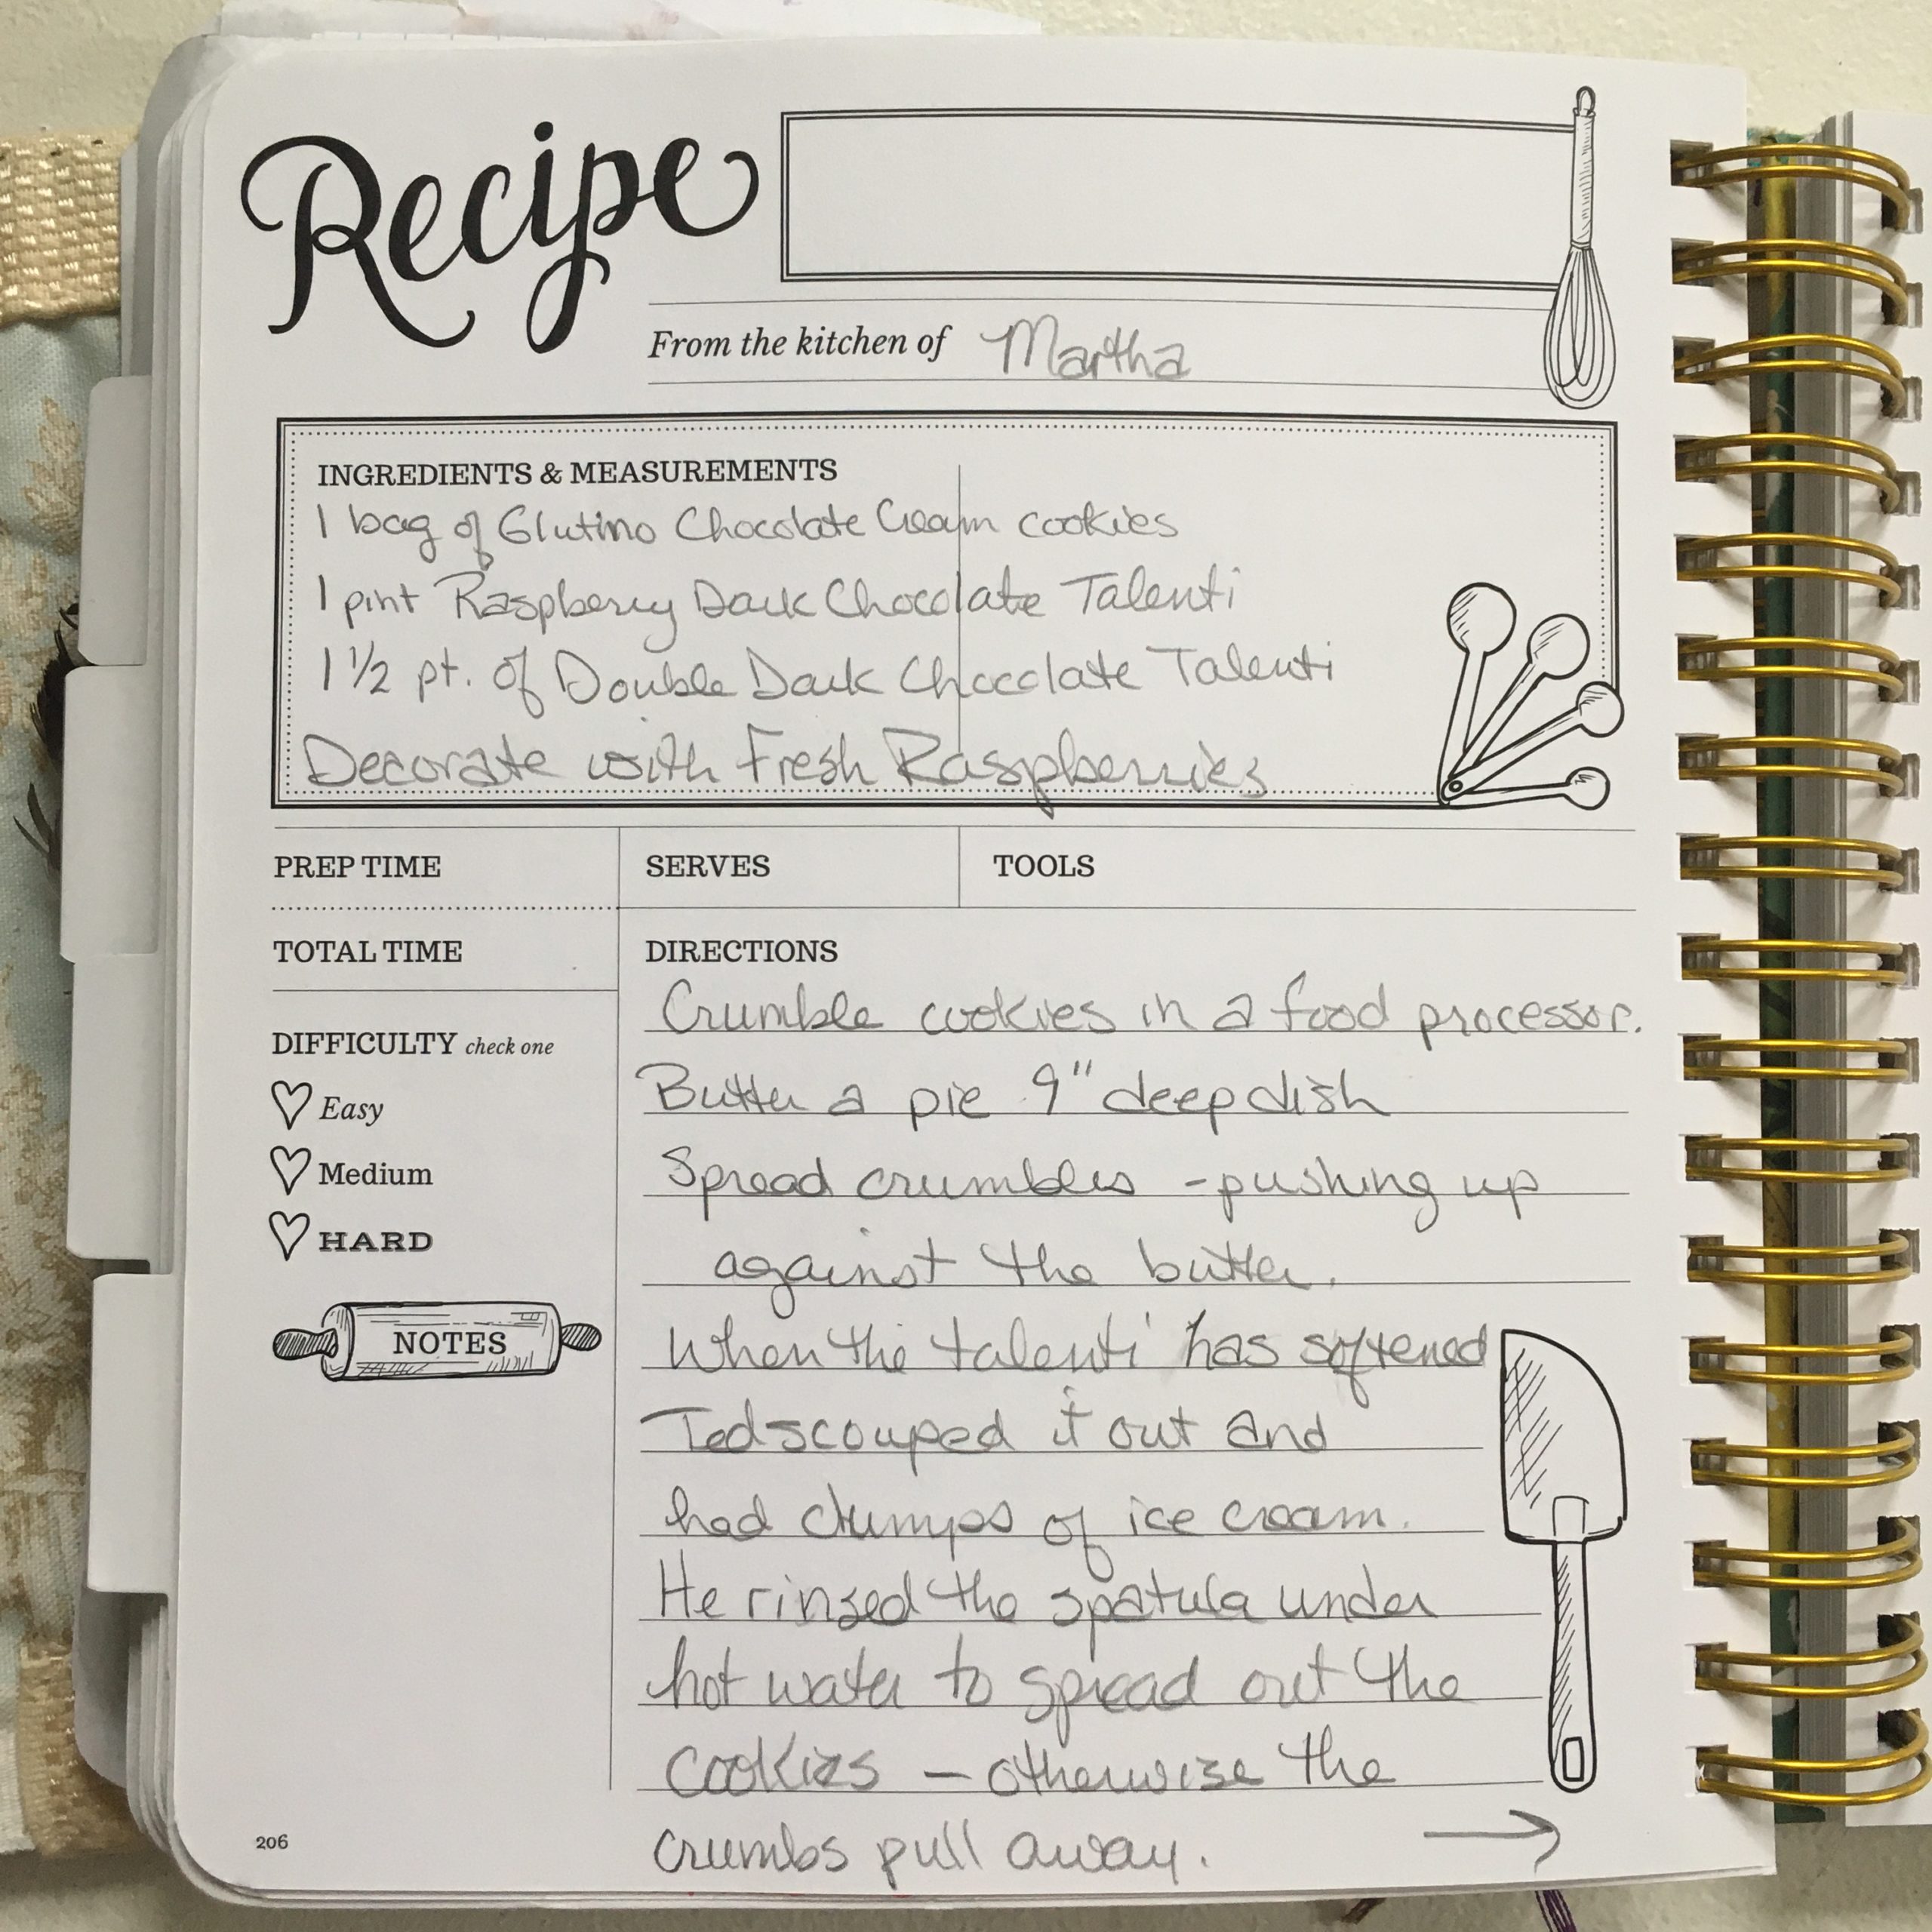 Recipe
From the kitchen of Martha
INGREDIENTS & MEASUREMENTS
1 bag of Glutino Chocolate Cream cookies
1 pint Raspberry Dark Chocolate Talenti
1 1/2 pt. of Double Dark Chocolate Talenti
Decorate with Fresh Raspberries
PREP TIME
SERVES
TOOLS
TOTAL TIME
DIFFICULTY check one
Easy
Medium
HARD
NOTES
DIRECTIONS
Crumble cookies in a food processor.
Butter a pie 9" deep dish
Spread crumbles - pushing up
against the butter.
When the talenti has softened
Ted scouped it out and
had clumps of ice cream.
He rinsed the spatula under
hot water to spread out the
cookies — otherwise the
crumbs pull away. →
206